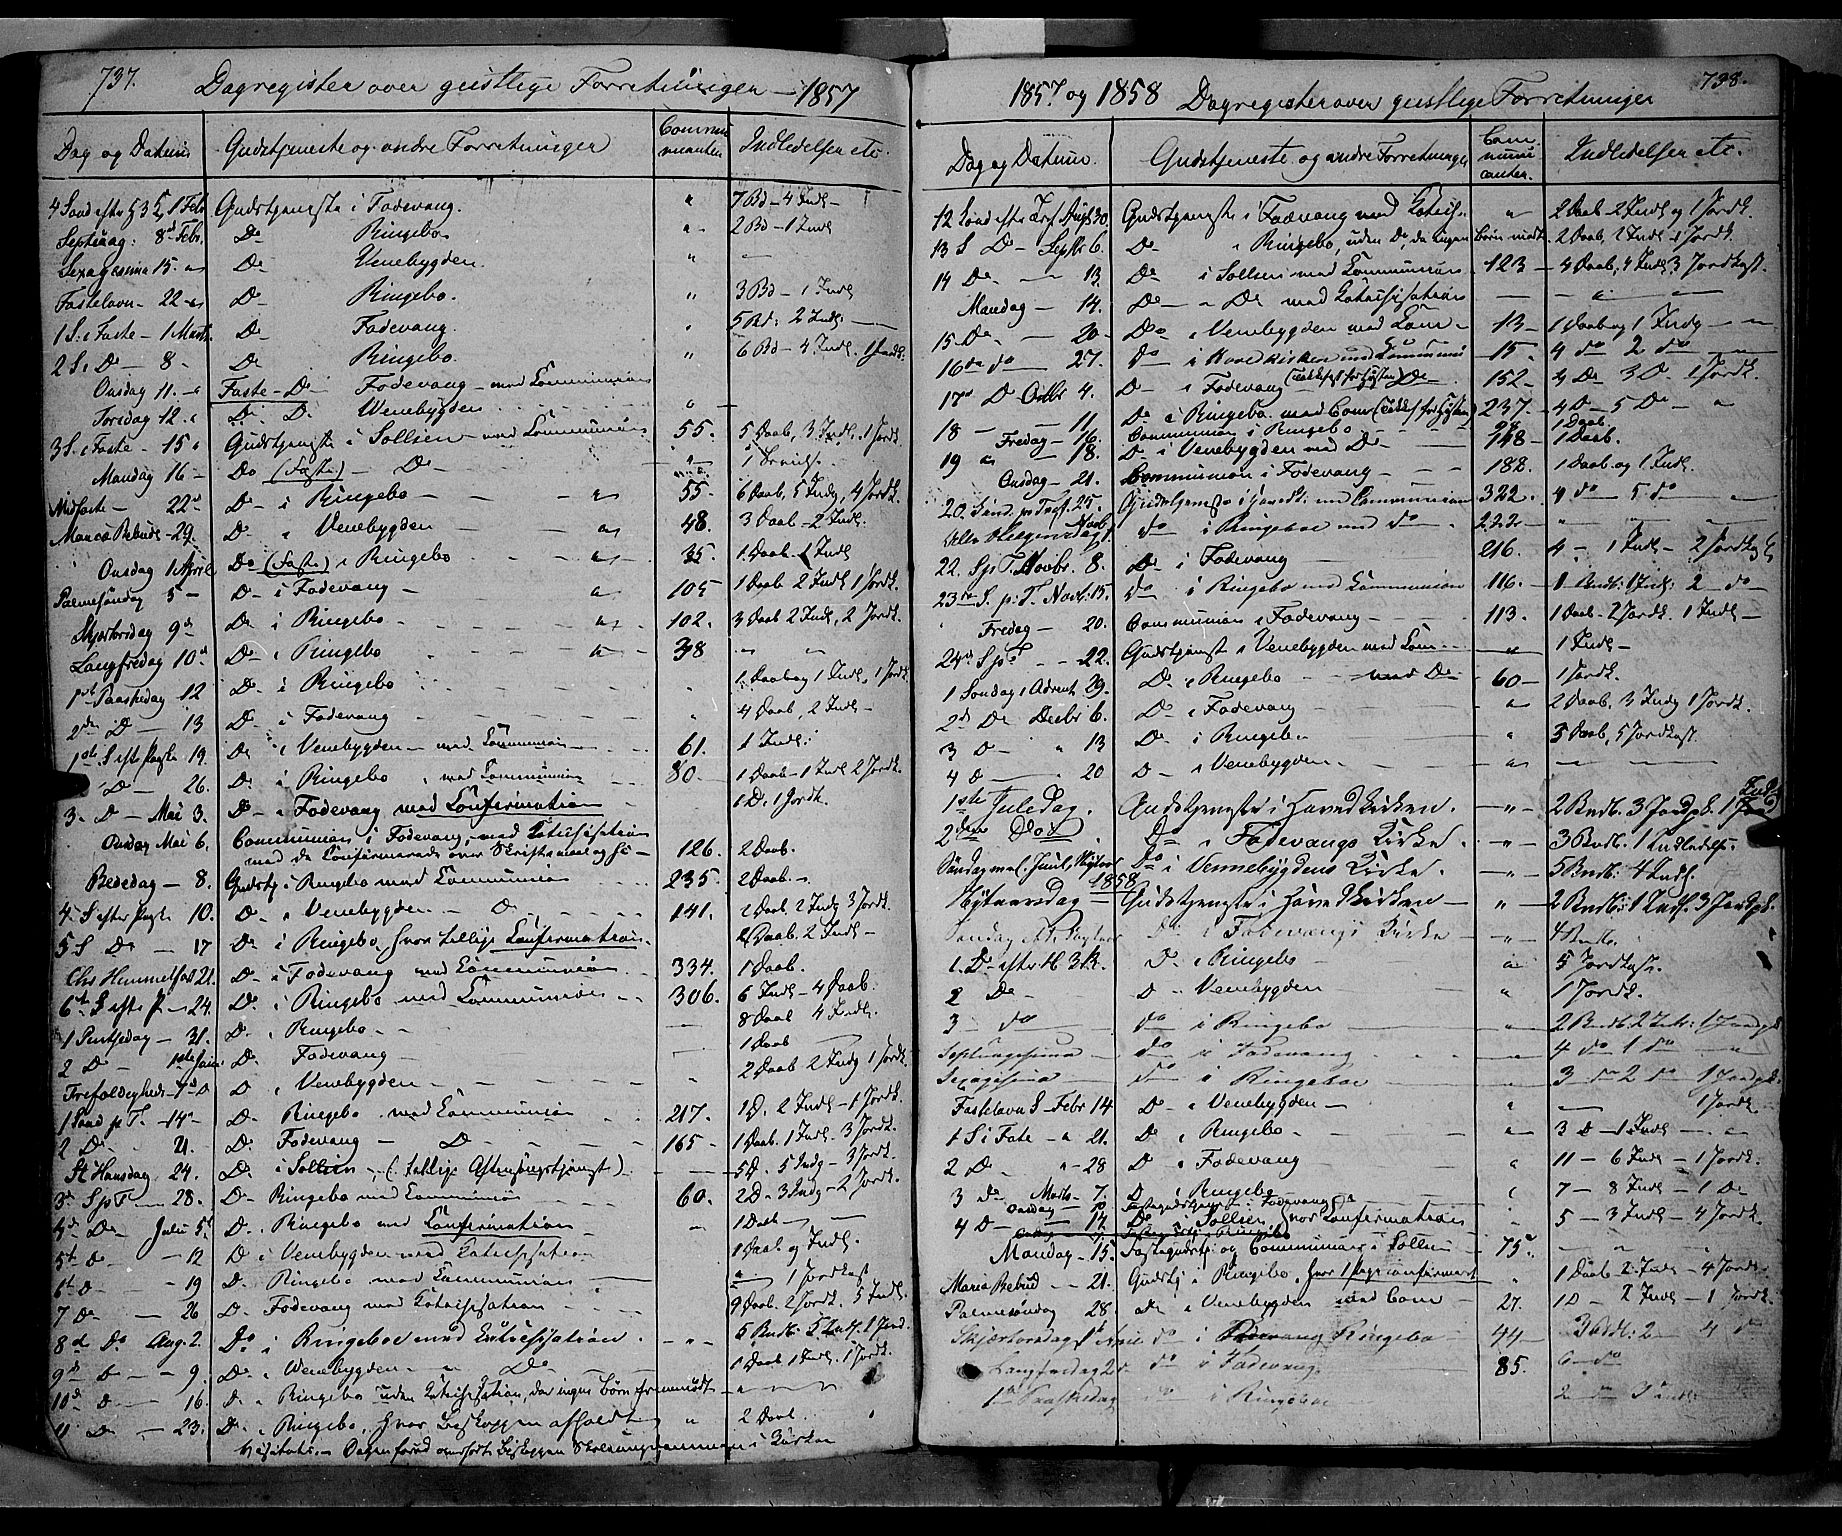 737.
Dagregister over geistlige Forretninger — 1857
Dag og Datum Gudstjeneste og andre Forretninger Communicanter Indledelser etc.
4 Sønd efter H 3 K, 1 Febr Gudstjeneste i Fodevang. " 7 Bd — 4 Indl —
Septuag: 8de Febr. Do Ringebo " 2 Bd — 1 Indl
Sexagesima 15. " Do Venebygden " —
Fastelavn — 22 " Do Ringebo. " 3 Bd — 1 Indl
1 S. i Faste — 1 Marts Do Fodevang. " 5 Bd: 2 Indl —
2 S. i D — 8 — Do Ringebo. " 6 Bd — 4 Indl. 1 Jordk.
Onsdag 11. " Faste — Do Fodevang — med Communion
Torsdag 12. " Do Do Wenebygden "
3 S. i Faste — 15 " Gudstjeneste i Sollien — med Communion 55. 5 Daab, 3 Indl. 1 Jordk.
Mandag 16 — Do (Faste) — Do "
Midfaste — 22de Do — i Ringebo — — " 55. 6 Daab, 5 Indg, 4 Jordk.
Mariæ Bebud. 29. Do i Venebygden — " 48. 3 Daab — 2 Indl.
Onsdag 1 April Do (Faste) i Ringebo " 35. 1 Daab 1 Indl
Palmesøndag 5 — Do — i Fodevang — " 105 1 Daab 2 Indl 1 Jordk.
Skjærtorsdag 9de Do i Ringebo — " 102. 3 Daab 2 Indl, 2 Jordk.
Langfredag 10de Do — i Ringebo " 38 — "
1ste Paaskedag 12 Do — i Ringebo 1 Daab og 1 Indl, 1 Jordk
2den D — 13 Do — i Fodevang — 4 Daab, 2 Indl —
1ste S. eft Paaske 19. Do i Venebygden — med Communion 61. 1 Indl:
D — 26. Do — i Ringebo, med Communion 80 — 1 Daab — 1 Indl 2 Jordk.
3 — D — Mai 3. Do — i Fodevang med Confirmation 1 D. 1 Jordk.
Onsdag Mai 6. Communion i Fodevang, med Catechisation
med de Confirmerede 126. 2 Daab.
Bededag — 8. Gudstj i Ringebo med Communion 235. 2 Daab —
4 — S efter Paaske 10. Do — i Venebygden — D 141. 2 Daab. 2 Indl 3 Jordk.
5 S Do — 17 Do i Ringebo, hvor tillige Confirmation. 2 Daab. 2 Indl —
Chr Himmelfart 21. Do — i Fodevang med Communion 334. 1 Daab.
6te S. efter P — 24. Do i Ringebo med Communion 306. 6 Indl — 4 Daab.
1 Pintsedag — 31. Do i Ringebo — — 8 Daab 4 Indl.
2 D — 1ste Juni Do Fodevang — 1 Daab
Trefoldigheds — 7de D i Venebygden — 2 Daab 2 Indg 1 Jordk.
1 Sønd p. T. — 14 — Do Ringebo med Communion 217. 1 D. 2 Indl — 1 Jordk.
2 D. — 21. Do Fodevang — D 165 — 1 Daab. 1 Indl. 3 Jordk.
St Hansdag. 24. Do i Sollien — (tillige Aftensangstjenst) — 5 D. 5 Indg — 3 Jordk.
3. S p T — 28. Do — Ringebo med Communion 60. 2 D — 3 Indg — 2 Jordk.
4de Do Juli 5t Do i Ringebo med Confirmation — 1 Daab —
5t — D — 12 D i Venebygden med Catechisation 1 Daab og Indl.
D — 19 Do Ringebo med Communion " — 1 Jordkast
7 Do — 26 Do Fodevang med Catechisation 9 Daab. 2 Jordk. 5 Indl.
8de Do Aug. 2. Do i Ringeboe med Catechisation. — " — 5 Bndb. 5 Indl. 1 Jord.
9de D — — 9. Do i Wenebygden — " Do 1 Daab 1 Indl. 1 Jordk.
10de D — 16. Do i Ringebo uden Catechisation, der ingen børn fremmødt —
11 D — 23. Do i Ringebo, hvor Biskoppen afholdt " 2 Daab.
Visitats. — Dagen forud Skoleungdommen i Kirken
1857 og 1858 Dagregister over geistlige Forretninger 738.
Dag og Datum. Gudstjeneste og andre Forretninger Communicanter. Indledelser etc.
12 Sønd efter Tref Aug. 30. Gudstjeneste i Fodevang med Catech. " 2 Daab 2 Indl og 1 Jordk.
13 S D — Septbr 6. Do i Ringebo, uden Do, da ingen Børn mødte. 2 Daab, 2 Indl 1 Jordk.
14 Do — 13. Do i Sollien med Communion 123 — 4 Daab, 4 Indl 3 Jordkast.
Mandag — 14. Do — Do med Catechisation — — " —
15 Do — 20 — Do i Venebygden med Com — 13 — 1 Daab og 1 Indg —
16de do 27. do i Hovedkirken med Commun 15. 4 do 2 do —
17de D Octbr 4. D — i Fodevang Do — 152 — 2 Do 3 D. 1 Jordk.
18 — — 11 Do i Ringebo med Com 237. — 4 D — 5 D — "
Fredag — 16. Communion i Ringebo 98 — 1 Daab.
19 " — 18. D — i Venebygden med Do — 148 — 1 Daab.
Onsdag — 21. Communion i Fodevang — 182. 1 Daab og 1 Indl.
20. Sønd. p. Tref. 25. Gudstjeneste i Hovedk. med Communion 322. 4 do 5 do —
Alle Helgensdag 1. Novb. do i Ringeboe med do 222. " — —
22. S p T. Novbr. 8. Do i Fodevang — 216. 4 — 1 Indl — 2 Jordk
23de S. p. T. Novb. 15. do i Ringebo med Communion 116 — 1 Bndb: 1 Indl: 2 — do —
Fredag — 20. Communion i Fodevang — 113. 1 Daab — 2 Jordk. 1 Indl —
24de S p T — — 22. Gudstjenst i Venebygden med Com — " — 1 Indl —
1 Søndag i Advent 29. Do — i Ringebo — med Do — 60 — 1 Jordk.
2de Do Decbr 6. Do — i Fodevang — " 2 Daab, 3 Indg 1 Jordk.
3 D — " 13 Do — i Ringebo — " 3 Daab, 5 Jordkast.
4 D — 20 D — i Venebygden — " — —
1ste Juledag. Gudstjeneste i Hovedkirken. — " — 2 Bndb. 3 Jordp. 1 Indl
2den Do Do — i Fodevangs Kirke. — " — 3 Bndb. 1 Indledelse.
Søndag mel. Juul, Nytaar Do i Vennebygdens Kirke. — " — 5 Bndb: 4 Indl.
1858
Nytaarsdag — Gudstjeneste i Hovedkirken — " — 2 Bndb: 1 Indl. 3 Jordpk.
Søndag eft. Nytaar Do i Fodevangs Kirke " 4 Bndb.
1. D — efter H 3 K. Do — i Ringebo — " 5 Jordkast.
2 Do — D — Venebygden — " 1 Jordk.
3 — do do i Ringebo " 2 Bndb 2 Indl: 1 Jordpk
Septuagesima — do i Fodevang — " 4 do 1 do —
Sexagesima — do i Ringeboe " 3 do 2 do 1 Jordpk.
Fastelavn S — Febr 14 D — i Venebygden — " — 1 Jordk.
1 S i Faste — " 21. Do i Ringebo — " 3 D — 1 Indl —
2 D — " 28 D — i Fodevang — " 11 — 6 Indl — 1 Jordk.
3 do Marts — 7. D i Ringebo " 7 — 8 Indl — 1 Do
Onsdag — 10. Fastegudstj. i Fodevang
4 D — 14 Do i Sollien, hvor Confirmation " 5 — 3 Indl — 4 Jordk.
Mandag — 15. Fastegudstj. og Communion i Sollien 75. —
Mariæ Bebud — 21. Gudstj i Ringebo, hvor 1 Pige confirmert " 1 Daab 2 Indl — 4 Jordk.
Palmesøndag 28. do i Venebygden med Com — 27. 1 D — 2 Indl — 1 Jordk.
Skjærtorsdag 1ste April do i Ringebo — 44 — 3 Bndb: 2 — 4 do
Langfredag 2den do i Fodevang. 85. 6 — do
1ste Paaskedag do i Ringeboe 2 do 3 Indl